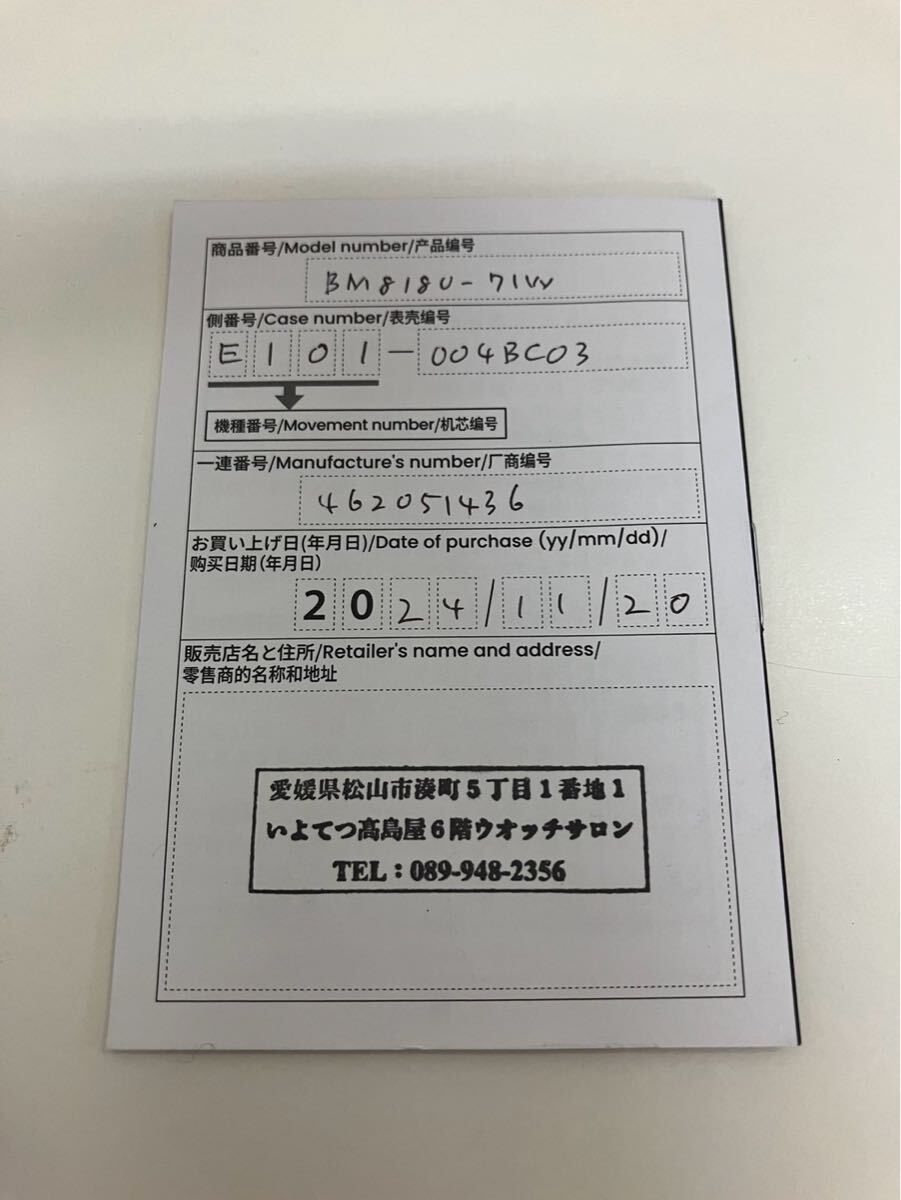 商品番号/Model number/产品编号
BM8180-71W
側番号/Case number/表壳编号
E101-004BC03
機種番号/Movement number/机芯编号
一連番号/Manufacture's number/厂商编号
462051436
お買い上げ日(年月日)/Date of purchase (yy/mm/dd)/
购买日期(年月日)
2024/11/20
販売店名と住所/Retailer's name and address/
零售商的名称和地址
愛媛県松山市湊町5丁目1番地1
いよてつ髙島屋6階ウオッチサロン
TEL:089-948-2356